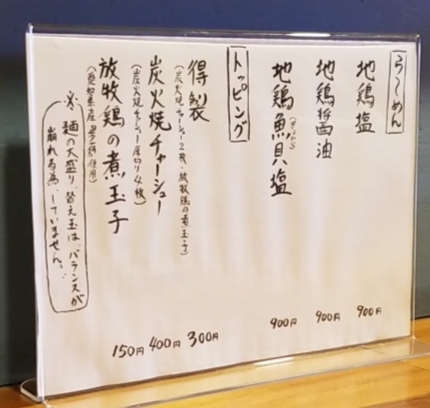 らーめん
地鶏塩 900円
地鶏醤油 900円
地鶏魚貝塩 900円
トッピング
得製 300円
(炭火焼チャーシュー2枚、放牧鶏の煮玉子)
炭火焼チャーシュー 400円
(炭火焼チャーシュー厚切り4枚)
放牧鶏の煮玉子 150円
※麺の大盛り、替え玉は、バランスが
崩れる為、していません。